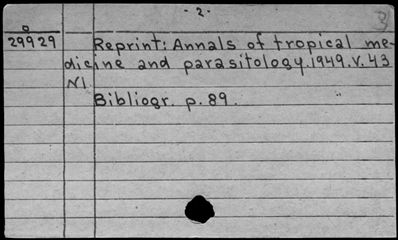 - 2 -
3
29929 Reprint: Annals of tropical me-
dicine and parasitology. 1949. v. 43
N1
Bibliogr. p. 89.